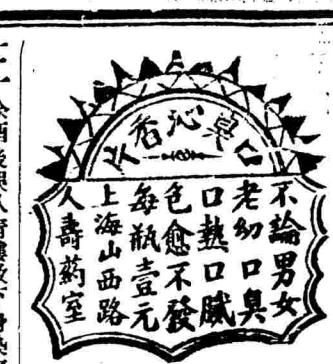 口臭沁香
不論男女
老幼口臭
口熱口膩
色愈不發
每瓶壹元
上海山西路
人壽葯室